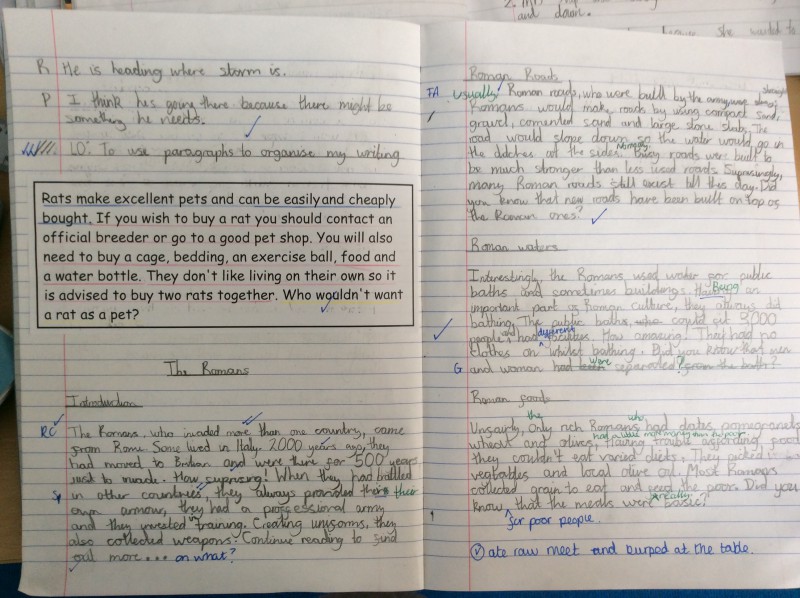 2. 
and down.
she wanted to
R He is heading where storm is.
P I think his going there because there might be
something he needs.
LO: To use paragraphs to organise my writing
Rats make excellent pets and can be easily and cheaply
bought. If you wish to buy a rat you should contact an
official breeder or go to a good pet shop. You will also
need to buy a cage, bedding, an exercise ball, food and
a water bottle. They don't like living on their own so it
is advised to buy two rats together. Who wouldn't want
a rat as a pet?
The Romans
Introduction
RC The Romans, who invaded more than one country, came
from Rome. Some lived in Italy. 2,000 years ago, they
had moved to Britian and were there for 500 years
just to invade. How suprising! When they had battled
Sp in other countries, they always provided their
own armour, they had a proffessional army
and they training. Creating uniforms, they
also collected weapons. Continue reading to find
out more... on what?
Roman Roads
FA Usually, Roman roads, who were built by the army, were straight
Romans would make roads by using compact sand,
gravel, cemented sand and large stone slabs. The
road would slope down so the water would go in
the ditches at the sides. busy roads were built to
be much stronger than less used roads. Suprisingly,
many Roman roads still exist till this day. Did
you know that new roads have been built on top of
the Roman ones?
Roman waters
Interestingly, the Romans used water for public
baths and sometimes buildings. Being an
important part in Roman culture, they always did
bathing. The public baths, could fit 3,000
people, and had different facilities. How amazing! They had no
clothes on whilst bathing. Did you know that men
G and woman were separated?
Roman foods
Unfairly, Only the rich Romans who had dates, pomegranets,
wheat and olives, had a little more money than the poor. Having trouble affording food
they couldn't eat varied diets. They picked
vegtables and local olive oil. Most Romans
collected grain to eat and feed the poor. Did you
know that the meals were really basic?
for poor people.
V ate raw meet and burped at the table.